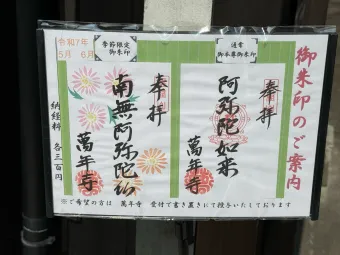 御朱印のご案内
通常
御本尊御朱印
奉拝
阿弥陀如来
萬年寺
季節限定
御朱印
奉拝
南無阿弥陀仏
萬年寺
令和7年
5月 6月
納経料 各三百円
※ご希望の方は 萬年寺 受付で書き置きにて授与いたしております